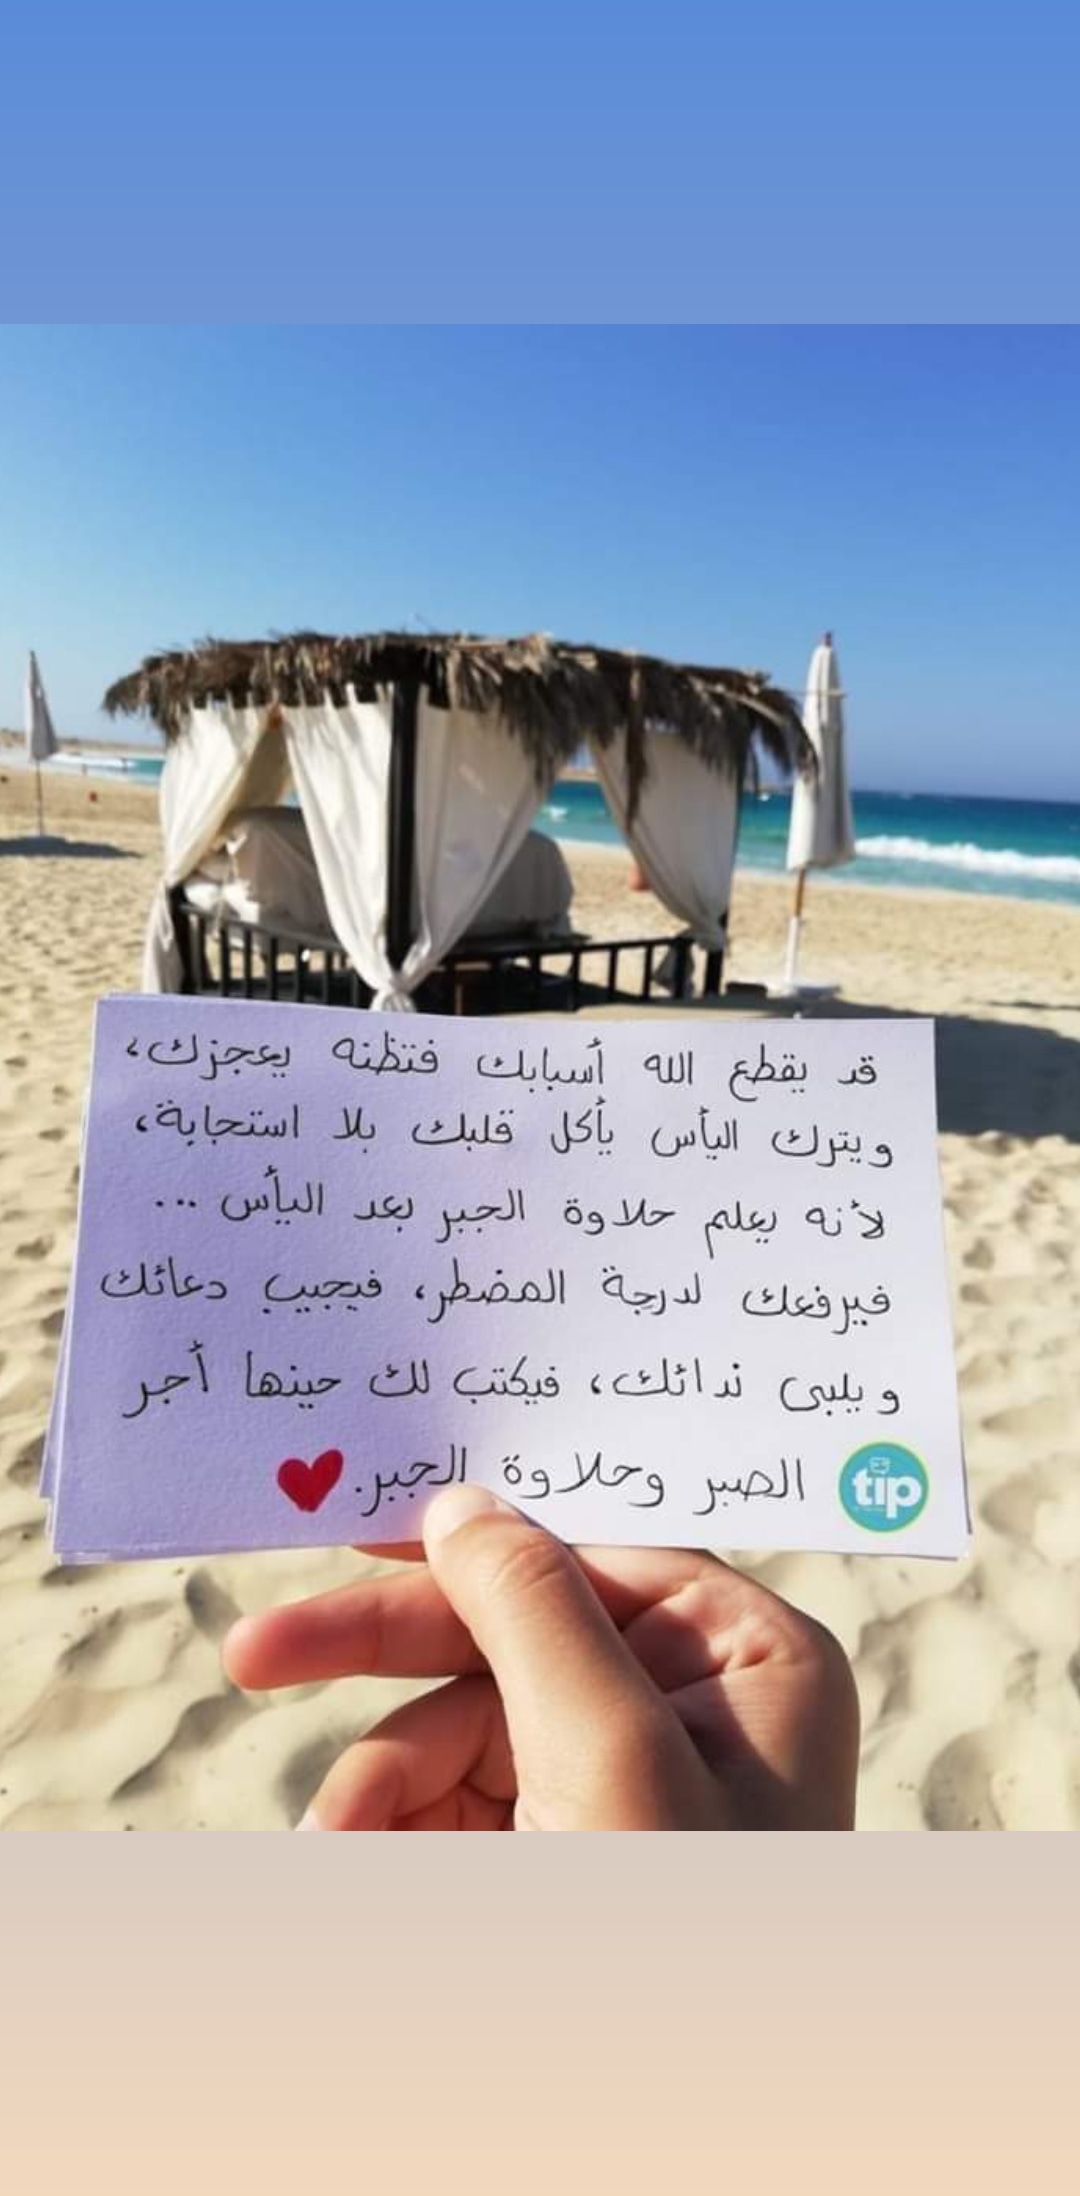 قد يقطع الله أسبابك فتظنه يعجزك،
ويترك اليأس يأكل قلبك بلا استجابة،
لأنه يعلم حلاوة الجبر بعد اليأس ...
فيرفعك لدرجة المضطر، فيجيب دعائك
ويلبى ندائك، فيكتب لك حينها أجر
الصبر وحلاوة الجبر.
tip